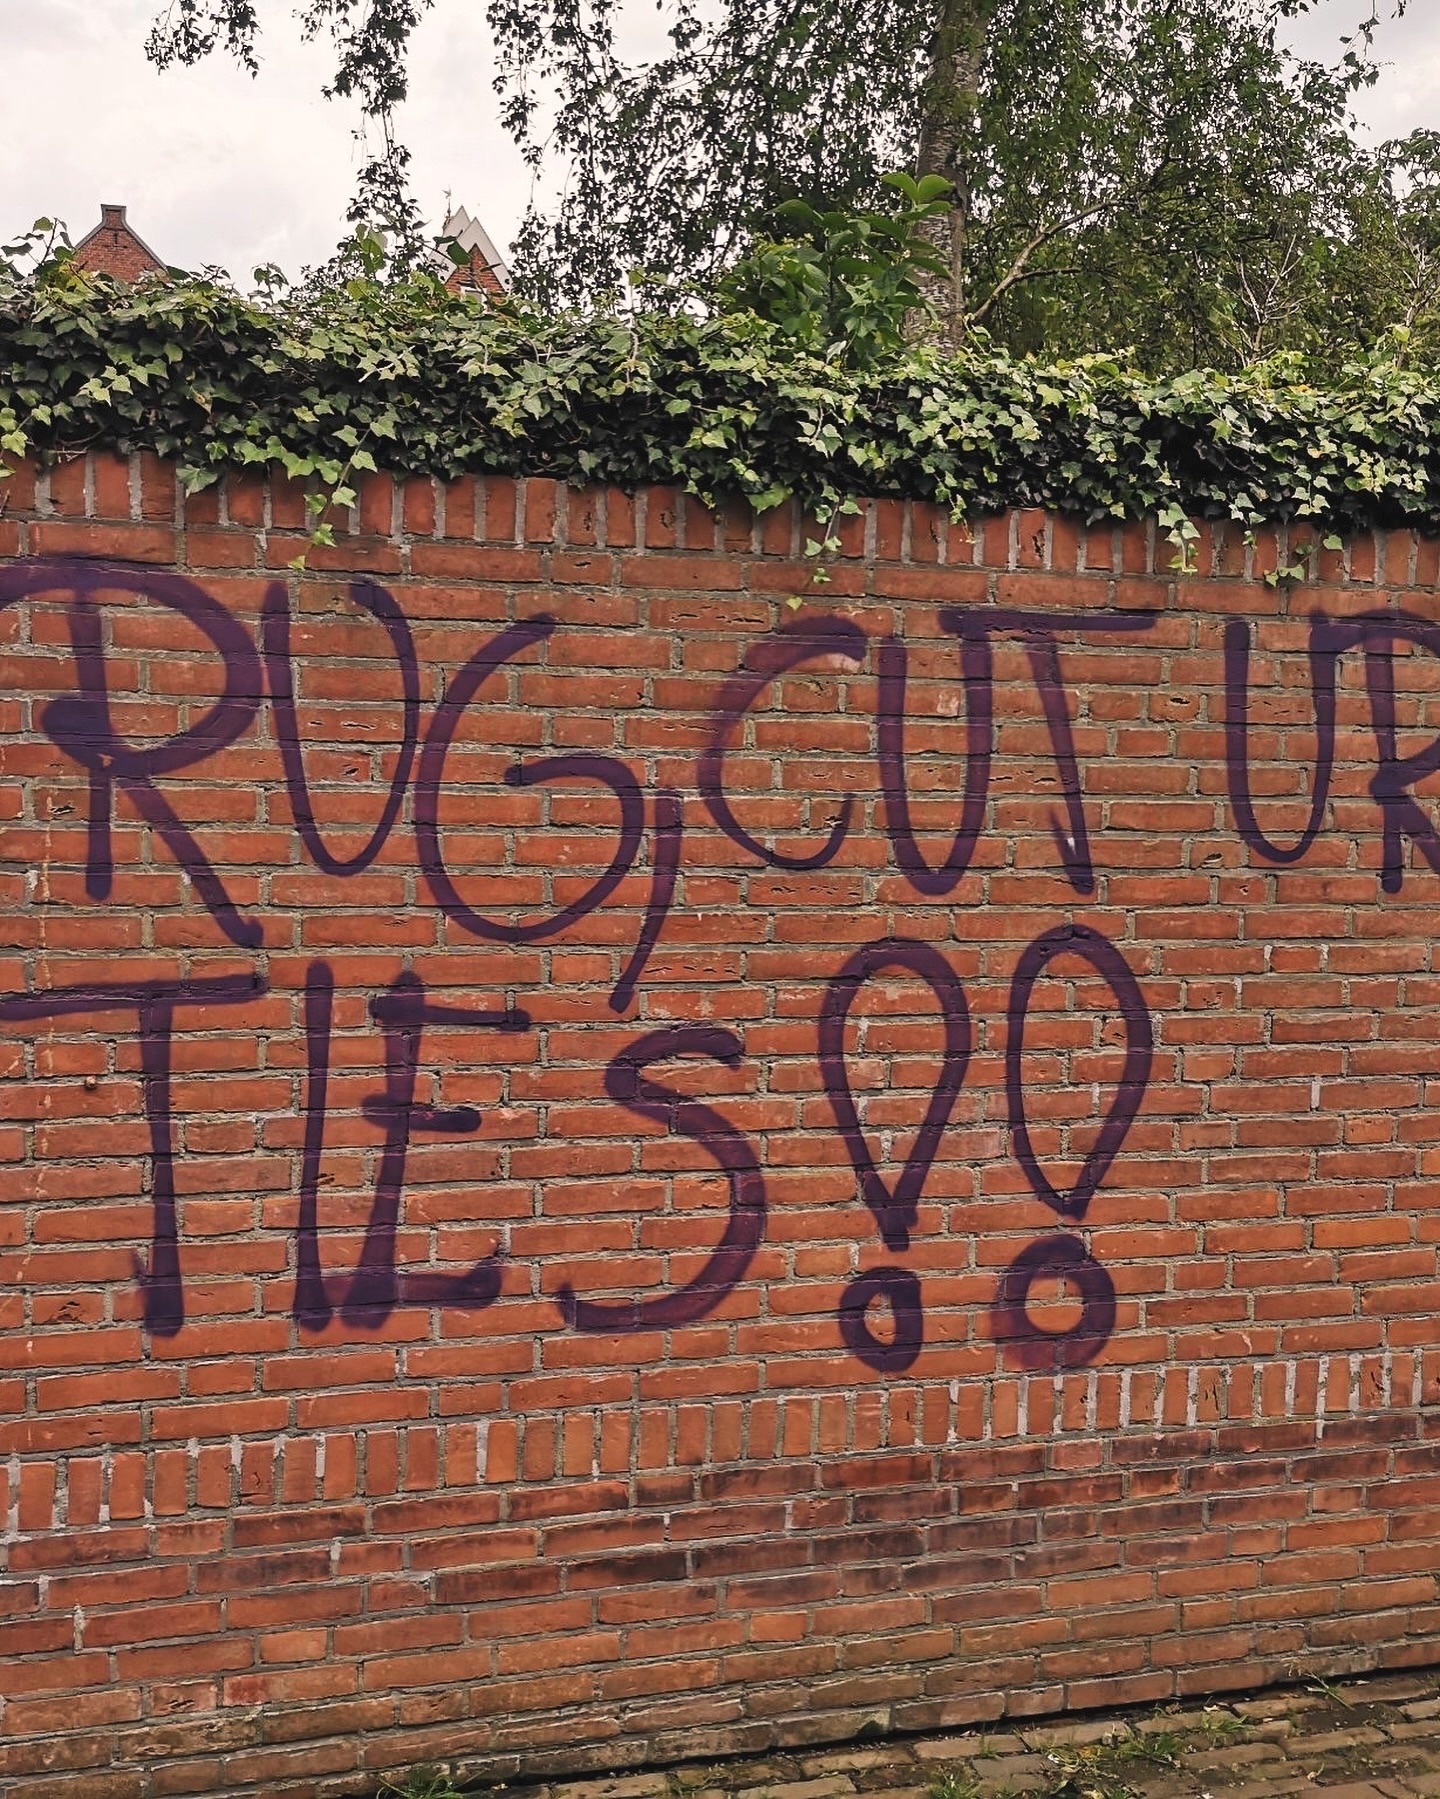 RUG, CUT UR
TIES!!